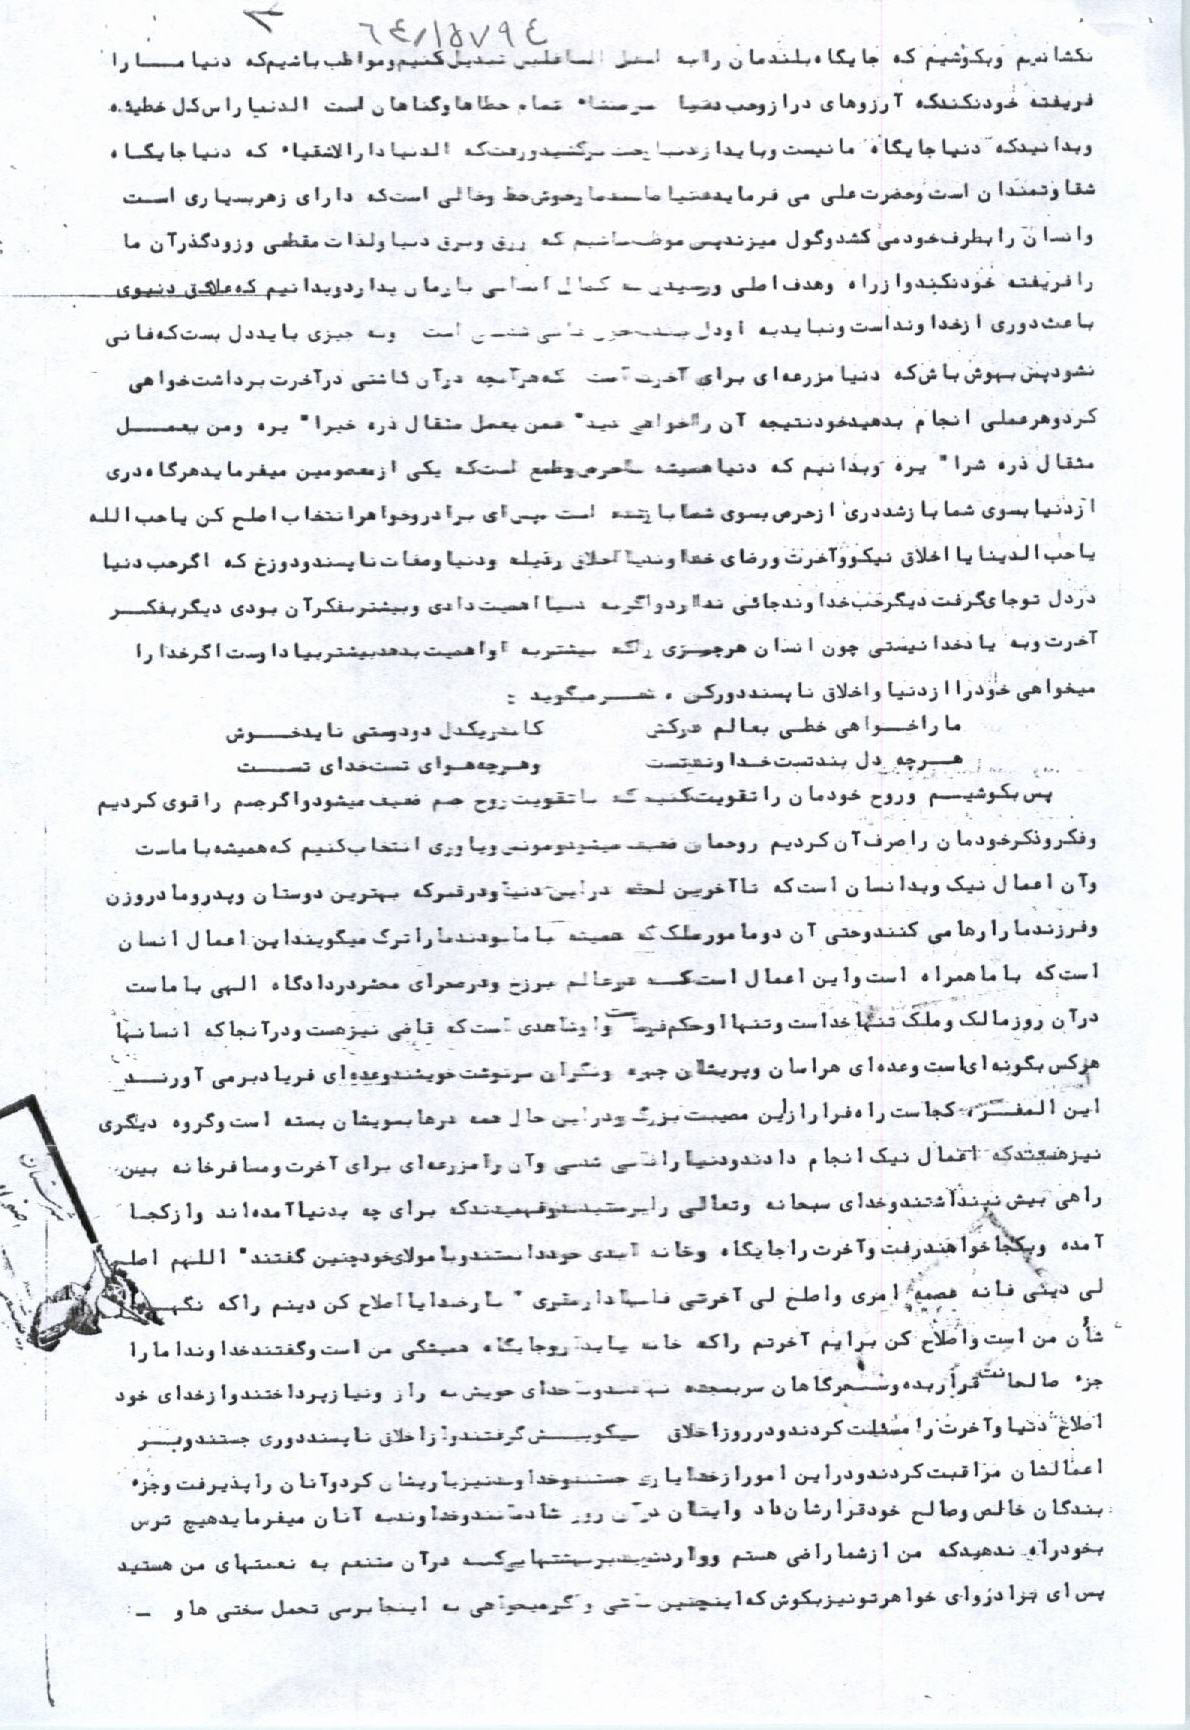 ٦٤/١٥٧٩٤
٢
نکشانیم وبکوشیم که جایگاه بلندمان رابه اسفل السافلین تبدیل کنیم ومواظب باشیم که دنیا مـــا را
فریفته خودنکندکه آرزوهای درازوحب دنیا سرمنشاء تمام خطاهاوگناهان است الدنیاراس کل خطیئه
وبدانیدکه دنیاجایگاه مانیست وبایداز دنیا رفت که الدنیادارالاشقیاء که دنیاجایگـاه
شقاوتمندان است وحضرت علی می فرمایددنیا مانندمارخوش خط وخالی است که دارای زهربسیاری اسـت
وانسان رابطرف خودمی کشدوگول میزندپس موظف باشیم که زرق وبرق دنیاولذات مقطعی وزودگذرآن ما
رافریفته خودنکندوازراه وهدف اصلی ورسیدن به کمال انسانی بازمان نداردوبدانیم که علائق دنیوی
باعث دوری ازخداونداست ونبایدبه اودل بست چون فانی شدنی است وبه چیزی بایددل بست که فانی
نشودپس بهوش باش که دنیامزرعه ای برای آخرت است که هرآنچه درآن کاشتی درآخرت برداشت خواهی
کردوهرعملی انجام بدهیدخودنتیجه آن راخواهی دید" فمن یعمل مثقال ذره خیرا" یره ومن یعمـــل
مثقال ذره شرا" یره وبدانیم که دنیاهمیشه باحرص وطمع است که یکی ازمعصومین میفرمایدهرگاه دری
ازدنیابسوی شمابازشددری ازحرص بسوی شمابازشده است پس ای برادروخواهرانتخاب اصلح کن یاحب الله
یاحب الدنیایااخلاق نیکووآخرت ورضای خداوندیااخلاق رذیله ودنیاوصفات ناپسندودوزخ که اگرحب دنیا
دردل توجای گرفت دیگرحب خداوندجائی نداردواگربه دنیااهمیت دادی وبیشتربفکرآن بودی دیگربفکـــر
آخرت وبه یادخدانیستی چون انسان هرچیزی راکه بیشتربه اواهمیت بدهدبیشتربیاداوست اگرخدارا
میخواهی خودراازدنیاواخلاق ناپسنددورکن ، شعـــرمیگوید :
ماراخــواهی خطی بعالم درکش کاندریکدل دودوستی نایدخــوش
هـــرچه دل بندتست خداوندتست وهرچه هــوای تست خدای تســـت
پس بکوشیـــم وروح خودمان راتقویت کنیدکه باتقویت روح جسم ضعیف میشودواگرجسم راقوی کردیم
وفکروذکرخودمان راصرف آن کردیم روحمان ضعیف میشودومونس ویاوری انتخاب کنیم که همیشه باماست
وآن اعمال نیک وبدانسان است که تاآخرین لحظه دراین دنیاودرقبرکه بهترین دوستان وپدرومادروزن
وفرزندمارارهامی کنندوحتی آن دومامورملک که همیشه بامابودندماراترک میگوینداین اعمال انسان
است که باماهمراه است واین اعمال است کـــه درعالم برزخ ودرصحرای محشردردادگاه الهی باماست
درآن روزمالک وملک تنهاخداست وتنهااوحکم فرماست واوشاهدی است که قاضی نیزهست ودرآنجاکه انسانها
هرکس بگونه ای است وعده ای هراسان وپریشان چهره ونگران سرنوشت خویشندوعده ای فریادبرمی آورنـــد
این المفـــر، کجاست راه فرارازاین مصیبت بزرگ ودراین حال همه درهابسویشان بسته است وگروه دیگری
نیزهستندکه اعمال نیک انجام دادندودنیارافانی شدنی وآن رامزرعه ای برای آخرت ومسافرخانه بین
راهی بیش نپنداشتندوخدای سبحانه وتعالی راپرستیدندوفهمیدندکه برای چه بدنیاآمده اند وازکجـا
آمده وبکجاخواهندرفت وآخرت راجایگاه وخانه ابدی خوددانستندوبامولای خودچنین گفتند" اللهم اصلح
لی دینی فانه عصمه امری واصلح لی آخرتی فانهادارمقری " بارخدایااصلاح کن دینم راکه نگهـــ
شأن من است واصلاح کن برایم آخرتم راکه خانه پایدار وجایگاه همیشگی من است وگفتندخداوندامارا
جزء صالحانت قراربده وسحرگاهان سربسجده نهادندوباخدای خویش به راز ونیازپرداختندوازخدای خود
اصلاح دنیاوآخرت رامسئلت کردندودرروزاخلاق نیکوپیش گرفتندوازاخلاق ناپسنددوری جستندوبــر
اعمالشان مراقبت کردندودراین امورازخدایاری جستندوخداوندنیزیاریشان کردوآنان راپذیرفت وجزء
بندگان خالص وصالح خودقرارشان داد وایشان درآن روز شادمانندوخداوندبه آنان میفرمایدهیچ ترس
بخودراه ندهیدکه من ازشماراضی هستم وواردشویددربهشتهائیکـــه درآن متنعم به نعمتهای من هستید
پس ای برادروای خواهرتونیزبکوش که اینچنین باشی واگرمیخواهی به اینجابرسی تحمل سختی هاو ــ
شهرستان